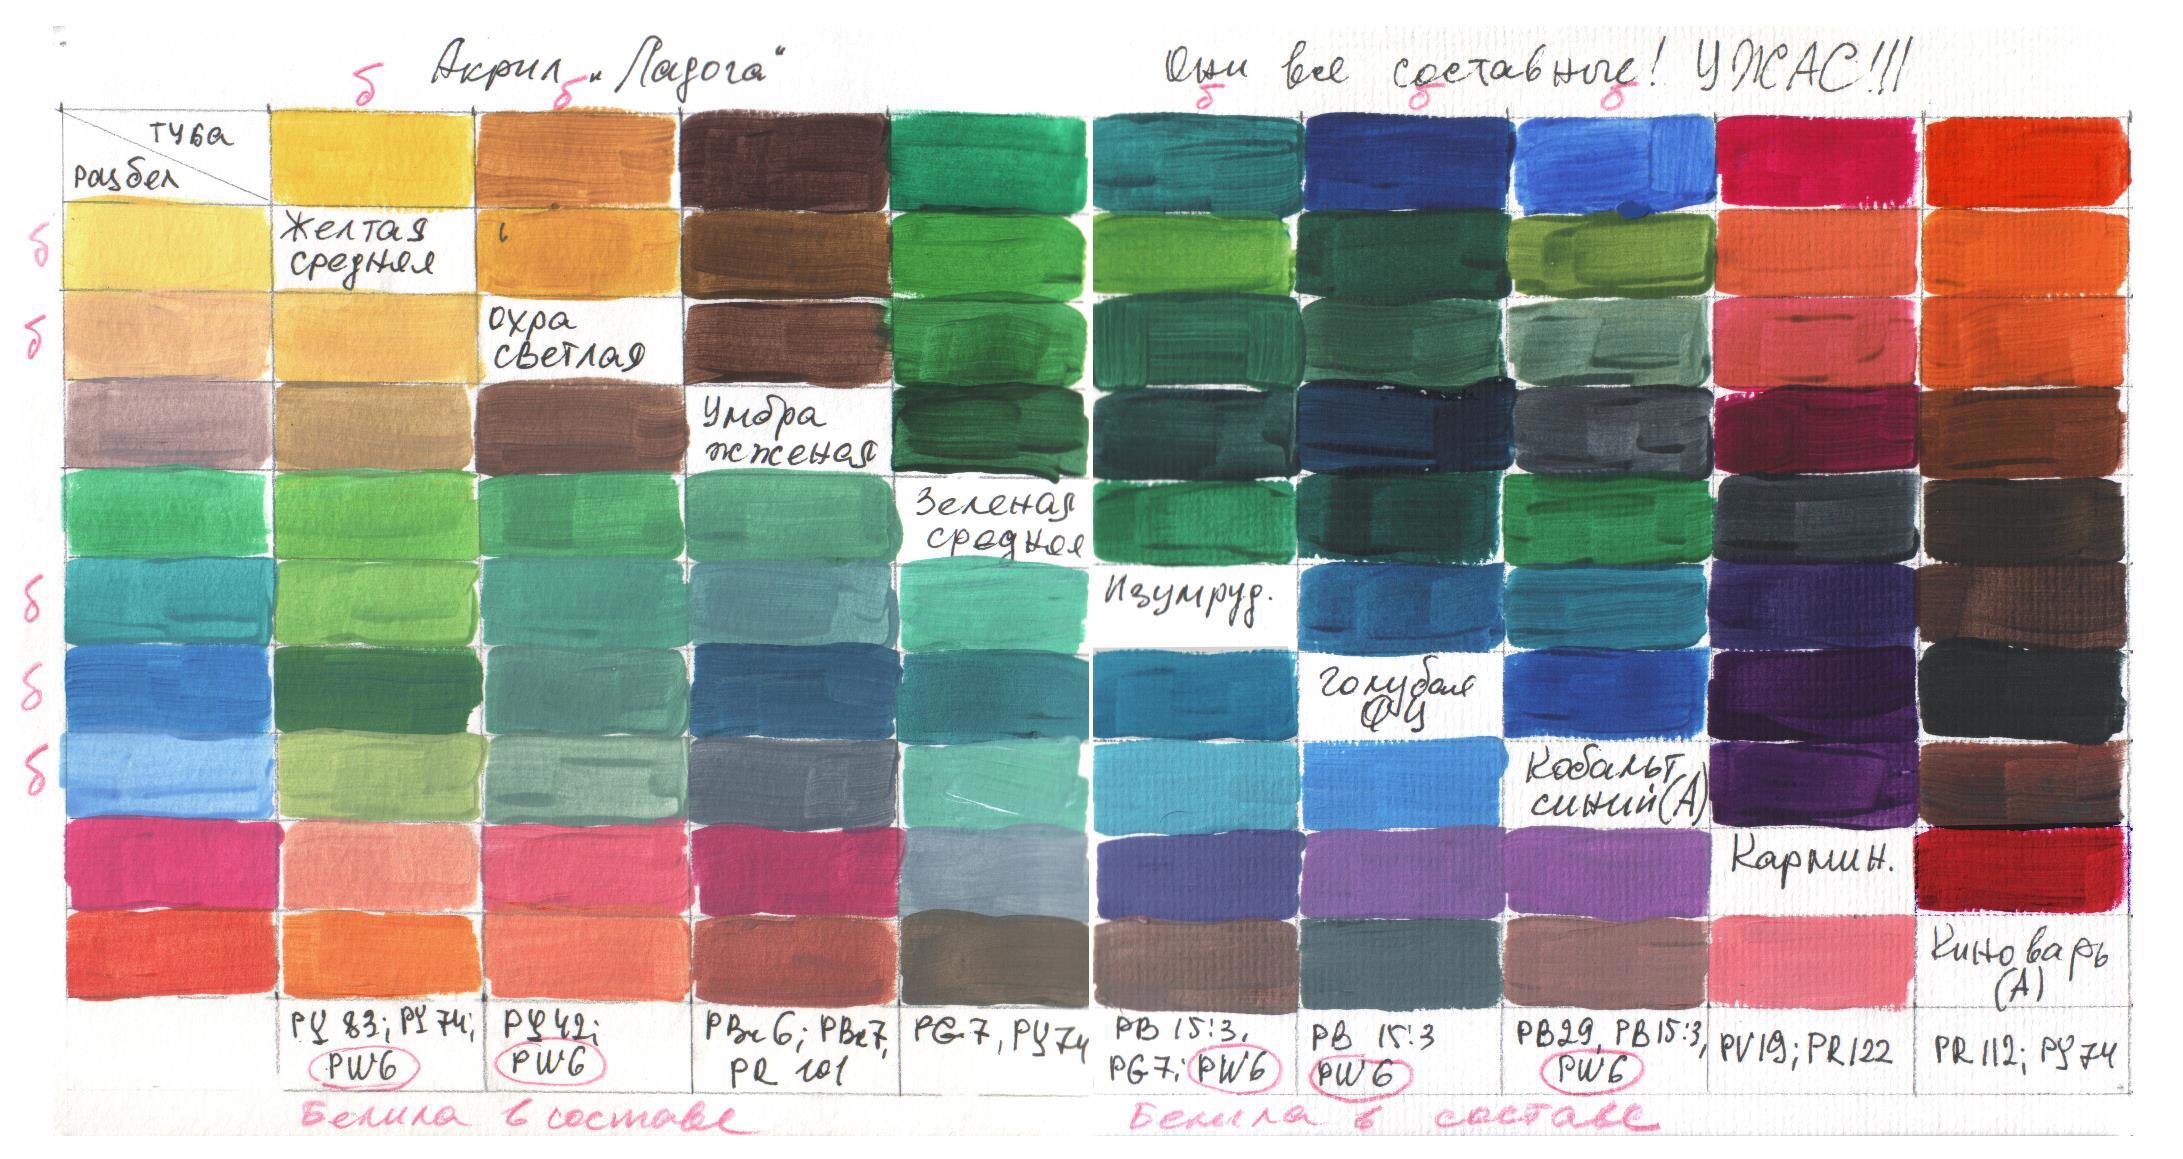 Акрил „Ладога“
Они все составные! УЖАС!!!
б б б б б
туба
разбел
б
Желтая
средняя
б
Охра
светлая
Умбра
жженая
Зеленая
средняя
б
Изумруд.
б
Голубая
ФЦ
б
Кобальт
синий(А)
Кармин.
Киноварь
(А)
PY 83; PY 74;
PW6
PY 42;
PW6
PBr 6; PBr7,
PR 101
PG7, PY74
PB 15:3,
PG7; PW6
PB 15:3
PW6
PB29, PB15:3,
PW6
PV19; PR122
PR 112; PY 74
Белила в составе
Белила в составе